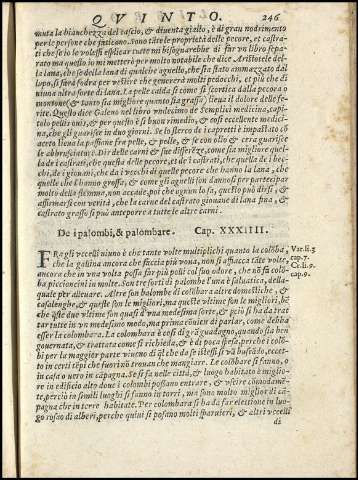 QVINTO. 246
muta la bianchezza del cascio, & diventa giallo, è di gran nodrimento
per le persone che faticano. Sono tāte le proprietà delle pecore, et castra-
ti che se io le volessi esplicar tutte mi bisognarebbe di far vn libro sepa-
rato ma quello io mi metterò per molto notabile che dice Aristotele del-
la lana, che se della lana di qualche agnello, che sia stato ammazzato dal
lupo, si farà far veste dice che generera molti pedocchi, et più che di
niuna altra sorte di lana. La pelle calda si come si scortica dalla pecora o
montone (& tanto sia migliore quanto sia grasso) lieua il dolore delle fe-
rite. Quello dice Galeno nel libro vndecimo de Semplici medicina, cape-
tolo pelle ouis, & per questo è si buon rimedio, & così eccellente medici-
na, che gli guarisce in due giorni. Se lo sterco di i capretti è impastato cō
aceto lieua la passione fra pelle, & pelle, & se con olio & cera guarisce
le abbrugiature. Dir delle carni & sue differēze, come sia migliore quel-
la de i castrati, che questa delle pecore, et de i castrati, che quella de i bec-
chi, de i giouani, che da i vecchi di quelle pecore che hanno la lana, che
quelle che l'hanno grossa, & come gli agnelli son dannosi per partecipar
molto della femma, non accade, poi che ognun lo sa, questo può dirsi, &
affirmarsi con verità, che la carne del castrato giouane di lana fina, &
castrato grasso si può anteporre a tutte le altre carni.
De i palombi, & palombare. Cap. XXXIIII.
FRa gli vccelli niuno è che tante volte multiplichi quanto la colōba,
che la gallina ancora che faccia più voua, non si affiacca tāte volte,
ancora che in vna volta possa far più polli col suo odore, che nō fa colō-
ba piccioncini in molte. Son tre sorti di palombe l'una è saluatica, della-
quale per alleuare. Altre son bolombe di colōbara altre domestiche, &
casalenghe, & queste son le migliori, ma queste vltime son le migliori, bē
che q̄ste due vltime son quasi d'una medesima sorte, & pciò si ha da trat
tar tutte in vn medesimo modo, ma primo cōuien di parlar, come debba
esser la colombara. La colombara è cosa di grā guadagno, quando sia ben
gouernata, & trattata come si richieda, & è di poca spesa, perche i colō-
bi per la maggior parte viueno di q̄l che da se istessi si vā buscādo, eccet-
to in certi tēpi che fuori nō trouan che mangiare. Le colōbare si fanno, o
in casa o uero in cāpagna. Se si fa nelle città, & luogo habitato è miglio-
re in edificio alto doue i colombi possano entrare, & vscire cōmodamē-
te, perciò in simili luoghi si fanno in torri, ma sono molto miglior di cā-
pagna che in terre habitate. Per colombara si ha da far elettione in luo-
go raso di alberi, perche quiui si posano molti sparuieri, & altri vccelli
di
Var. li. 3
cap. 7.
Co. li. 9.
cap. 90